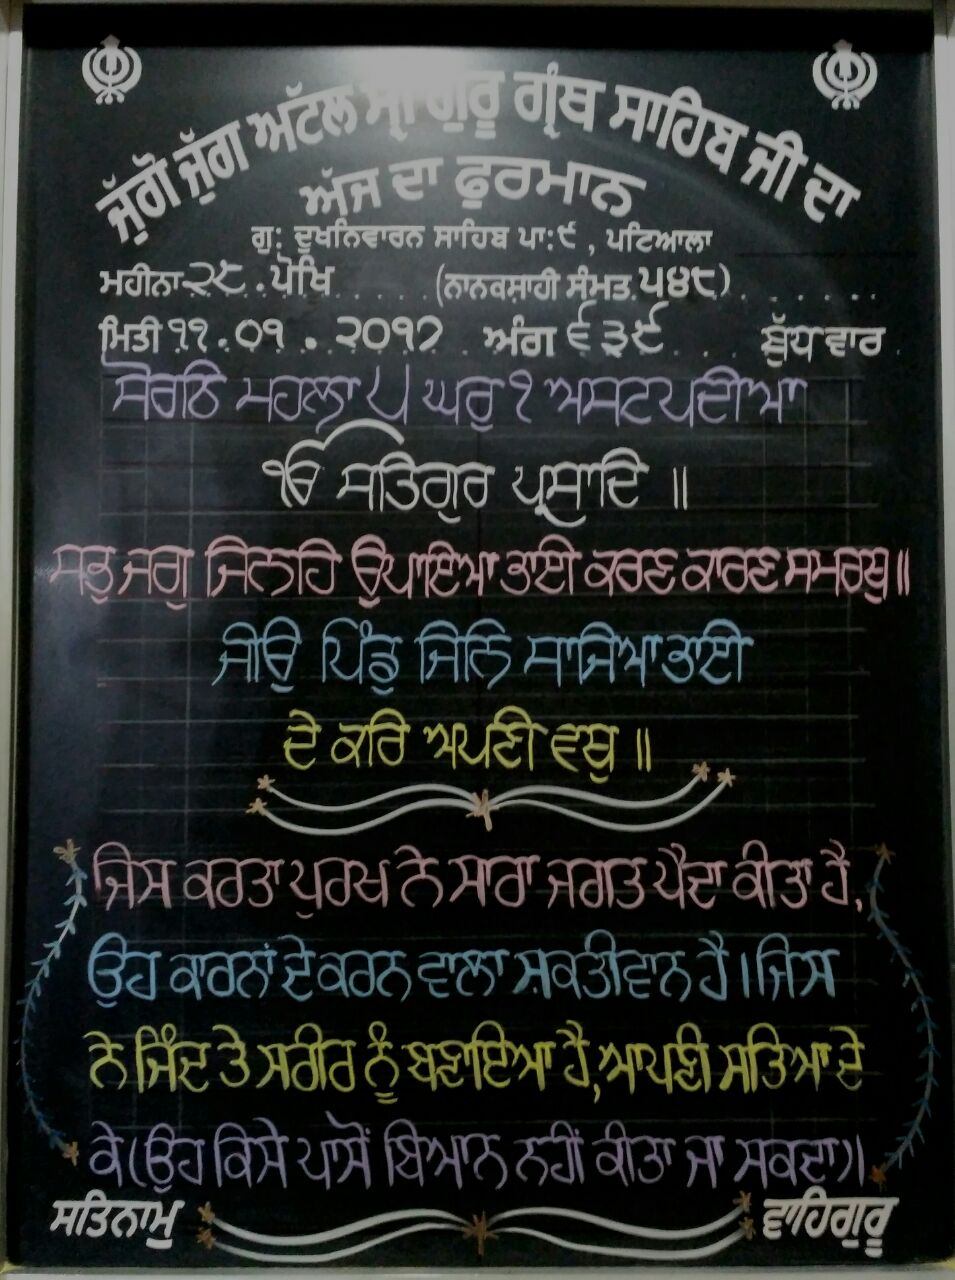 ਜੁੱਗੋ ਜੁੱਗ ਅੱਟਲ ਸ੍ਰੀ ਗੁਰੂ ਗ੍ਰੰਥ ਸਾਹਿਬ ਜੀ ਦਾ
ਅੱਜ ਦਾ ਫੁਰਮਾਨ
ਗੁ: ਦੁਖਨਿਵਾਰਨ ਸਾਹਿਬ ਪਾ:੯ , ਪਟਿਆਲਾ
ਮਹੀਨਾ ੨੮ ਪੋਖਿ (ਨਾਨਕਸ਼ਾਹੀ ਸੰਮਤ ੫੪੮)
ਮਿਤੀ ੧੧.੦੧.੨੦੧੭ ਅੰਗ ੬੩੯ ਬੁੱਧਵਾਰ
ਸੋਰਠਿ ਮਹਲਾ ੫ ਘਰੁ ੧ ਅਸਟਪਦੀਆ
ੴ ਸਤਿਗੁਰ ਪ੍ਰਸਾਦਿ ॥
ਸਭੁ ਜਗੁ ਜਿਨਹਿ ਉਪਾਇਆ ਭਾਈ ਕਰਣ ਕਾਰਣ ਸਮਰਥੁ ॥
ਜੀਉ ਪਿੰਡੁ ਜਿਨਿ ਸਾਜਿਆ ਭਾਈ
ਦੇ ਕਰਿ ਅਪਣੀ ਵਥੁ ॥
ਜਿਸ ਕਰਤਾ ਪੁਰਖ ਨੇ ਸਾਰਾ ਜਗਤ ਪੈਦਾ ਕੀਤਾ ਹੈ,
ਉਹ ਕਾਰਨਾਂ ਦੇ ਕਰਨ ਵਾਲਾ ਸ਼ਕਤੀਵਾਨ ਹੈ। ਜਿਸ
ਨੇ ਜਿੰਦ ਤੇ ਸਰੀਰ ਨੂੰ ਬਣਾਇਆ ਹੈ, ਆਪਣੀ ਸਤਿਆ ਦੇ
ਕੇ (ਉਹ ਕਿਸੇ ਪਾਸੋਂ ਬਿਆਨ ਨਹੀਂ ਕੀਤਾ ਜਾ ਸਕਦਾ)।
ਸਤਿਨਾਮੁ ਵਾਹਿਗੁਰੂ